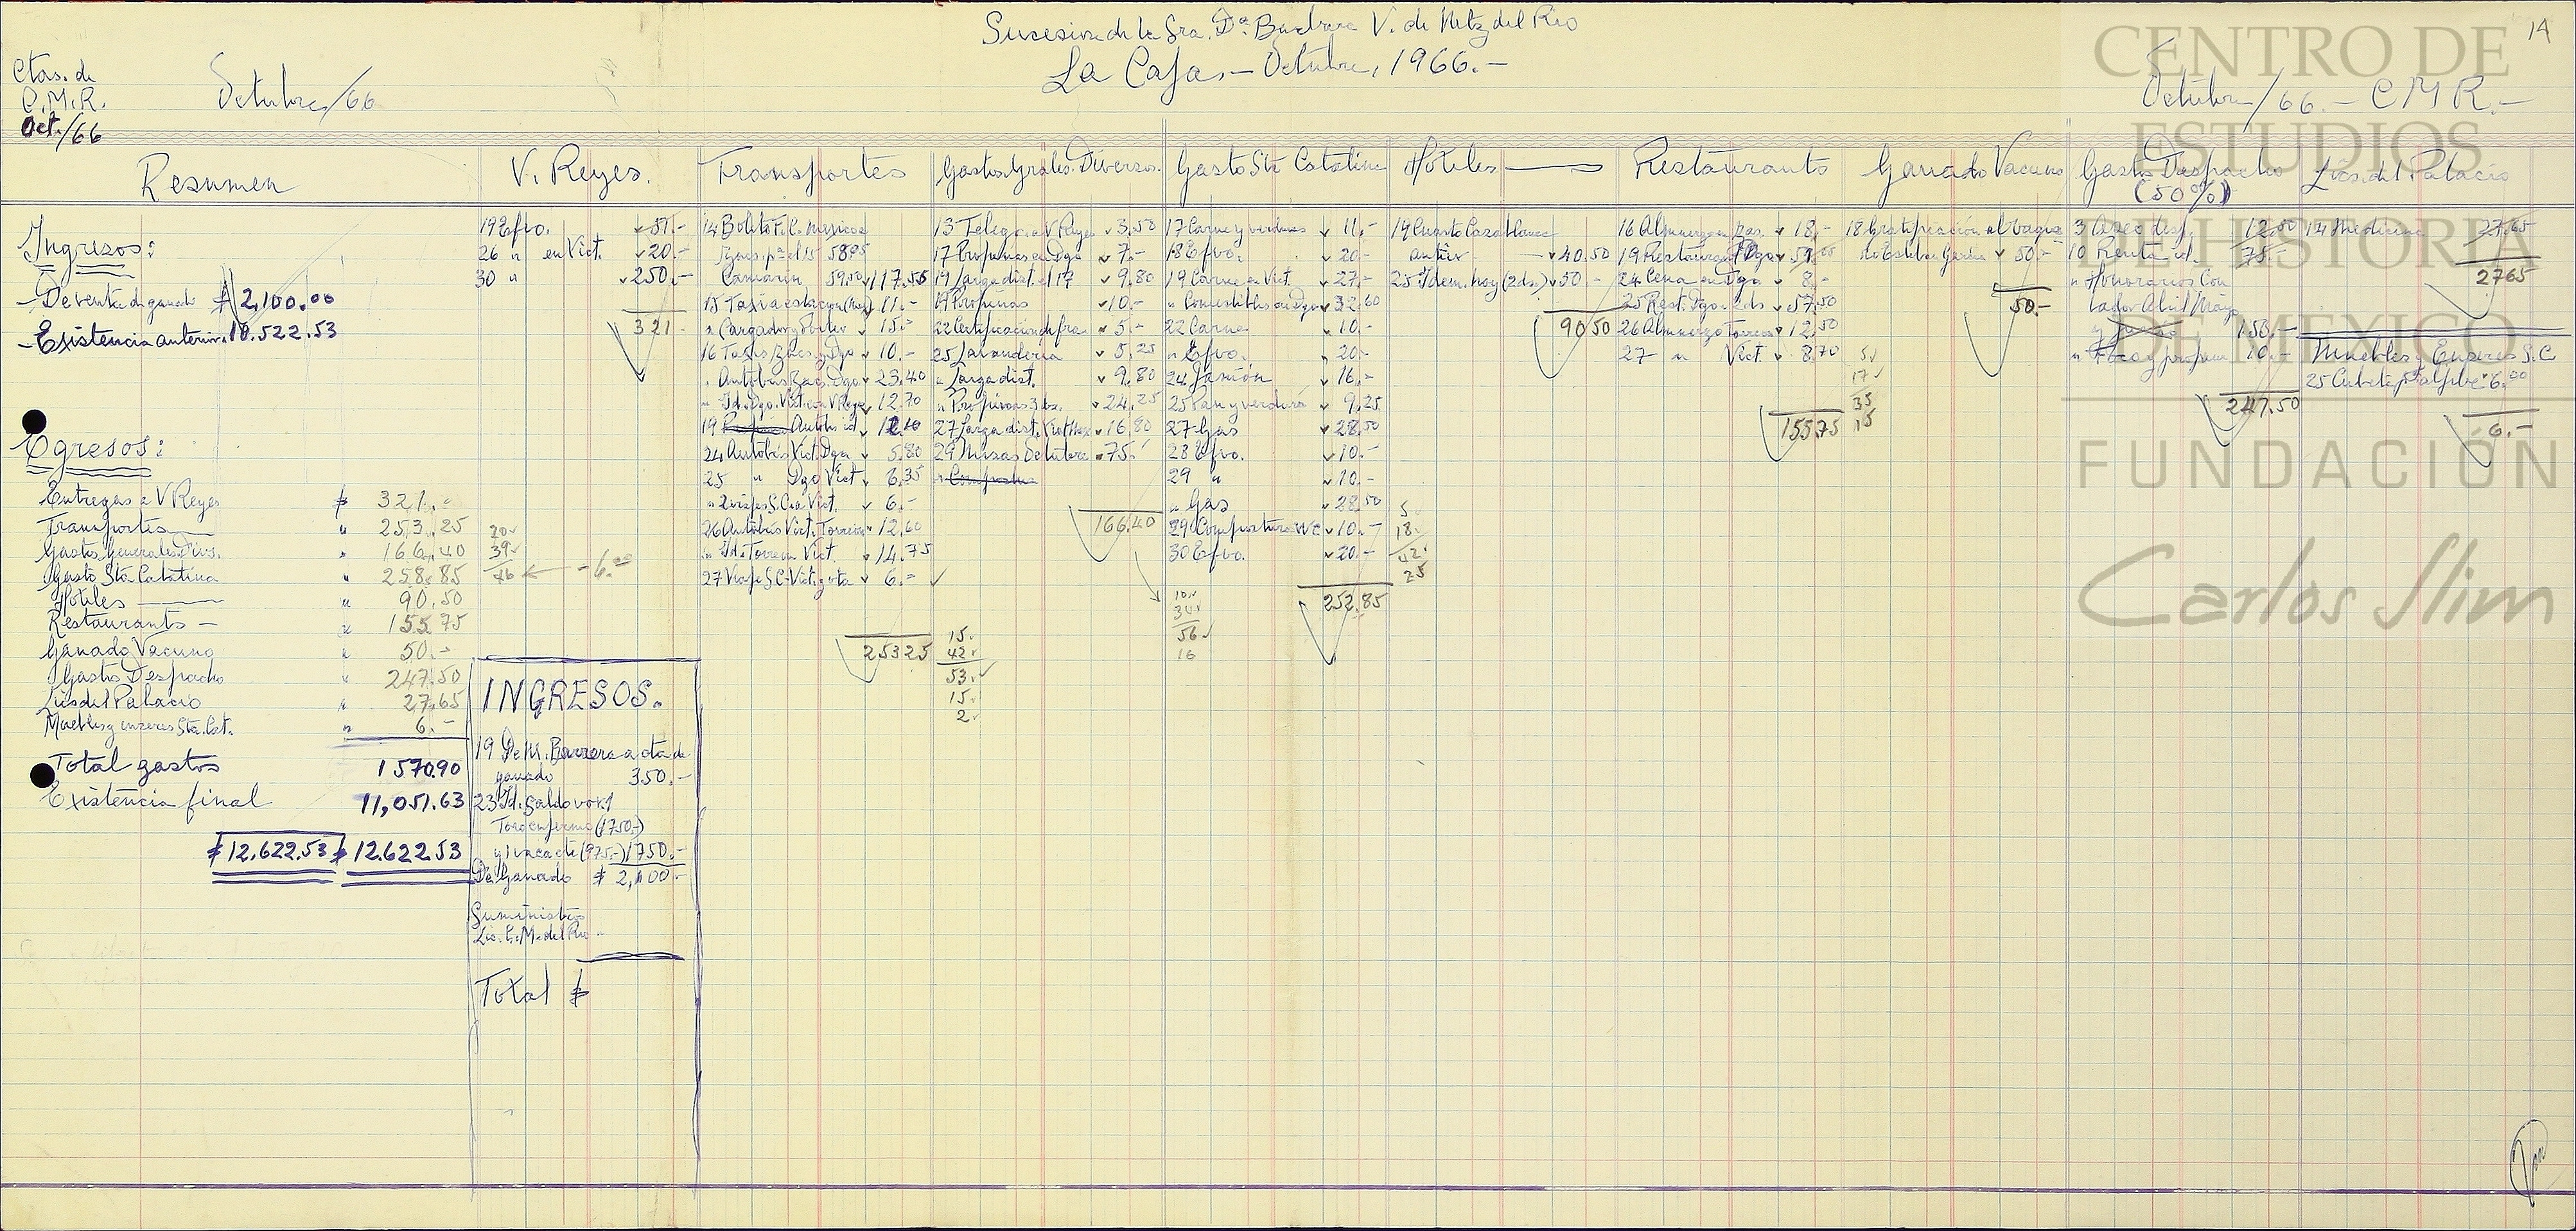 14
Sucesion de la Sra. Dª Barbara V. de Mtz del Rio
La Caja.— Octubre, 1966.—
Ctas. de
C.M.R.
Oct./66
Octubre/66
Octubre/66.— C M R.—
Resumen
Ingresos:
— De venta de ganado $ 2,100.00
— Existencia anterior. 10.522.53
Egresos:
Entregas a V Reyes $ 321.—
Transportes " 253.25
Gastos Generales Divs. " 166.40
Gasto Sta Catalina " 258.85
Hoteles " 90.50
Restaurants — " 155.75
Ganado Vacuno " 50.—
Gastos Despacho " 247.50
Lics del Palacio " 27.65
Muebles y enseres Sta. Cat. " 6.—
Total gastos 1570.90
Existencia final 11,051.63
$12.622.53 $12.622.53
V. Reyes.
19 Efvo. 51.—
26 " en Vict. 20.—
30 " 250.—
321.—
20
39
46 ← —6.00
INGRESOS.
19 De M. Barrera a cta de
ganado 350.—
23 Id. Saldo vor. 1
Toro enfermo (1750.—)
y 1 vaca cte (975.—) 1750.—
De Ganado $ 2,100.—
Suministros
Lic. C. M. del Rio —
Total $
Transportes
14 Boleto F.C. Mexico a
58.95
Camarin 59.50 117.55
15 Taxi a estacion 11.—
" Cargador y Porter 15.—
16 Taxis Zacs. y Dgo 10.—
" Autobus Zacs. Dgo. 23.40
" Id. Dgo. Vict. con V Reyes 12.70
19 Autobs id. 12.10
24 Autobus Vict. Dgo 5.80
25 " Dgo Vict 6.35
" Viaje S.C. a Vict. 6.—
26 Autobús Vict. Torreon 12.60
" Id. Torreon Vict. 14.75
27 Viaje S C-Vict. y vta 6.—
253 25
Gastos Grales. Diversos.
13 Telegr. a V Reyes 3.50
17 Propinas en Dgo 7.—
19 Larga dist. el 17 9.80
19 Propinas 10.—
22 Certificación de fra 5.—
25 Lavanderia 5.25
" Larga dist. 9.80
" Propinas 3 ds. 24.25
27 Larga dist. Vict Mex 16.80
29 Misas Octubre 75.—
" Compostura
166.40
15
42
53
15
2
Gasto Sta Catalina
17 Carne y verduras 11.—
18 Efvo. 20.—
19 Carne en Vict. 27.—
" Comestibles en Dgo 32.60
22 Carne 10.—
" Efvo. 20.—
24 Jamón 16.—
25 Pan y verdura 9.25
27 Gas 28.50
28 Efvo. 10.—
29 " 10.—
" Gas 28.50
29 Compostura WC 10.—
30 Efvo. 20.—
252.85
10
34
56
16
Hoteles
19 Cuarto Casablanca
antier 40.50
25 Idem. hoy (2 ds.) 50.—
90 50
5
18
42
25
Restaurants
16 Almuerzo en Zas. 18.—
19 Restaurant Dgo
24 Cena en Dgo. 8.—
25 Rest. Dgo 2 ds 57.50
26 Almuerzo Torreon 12.50
27 " Vict. 8.70
155 75
5
17
35
15
Ganado Vacuno
18 Gratificación al vaque
ro Esteban Garcia 50.—
50.—
Gastos Despacho
(50%)
3 Aseo desp. 12.50
10 Renta id. 75.—
" Honorarios Con
tador Abril Mayo
y Junio 150.—
10.—
247.50
Lics. del Palacio
14 Medicina 27.65
27 65
Muebles y Enseres S. C
25 Cubeta 6.00
6.—
CENTRO DE
ESTUDIOS
DE HISTORIA
DE MEXICO
FUNDACIÓN
Carlos Slim